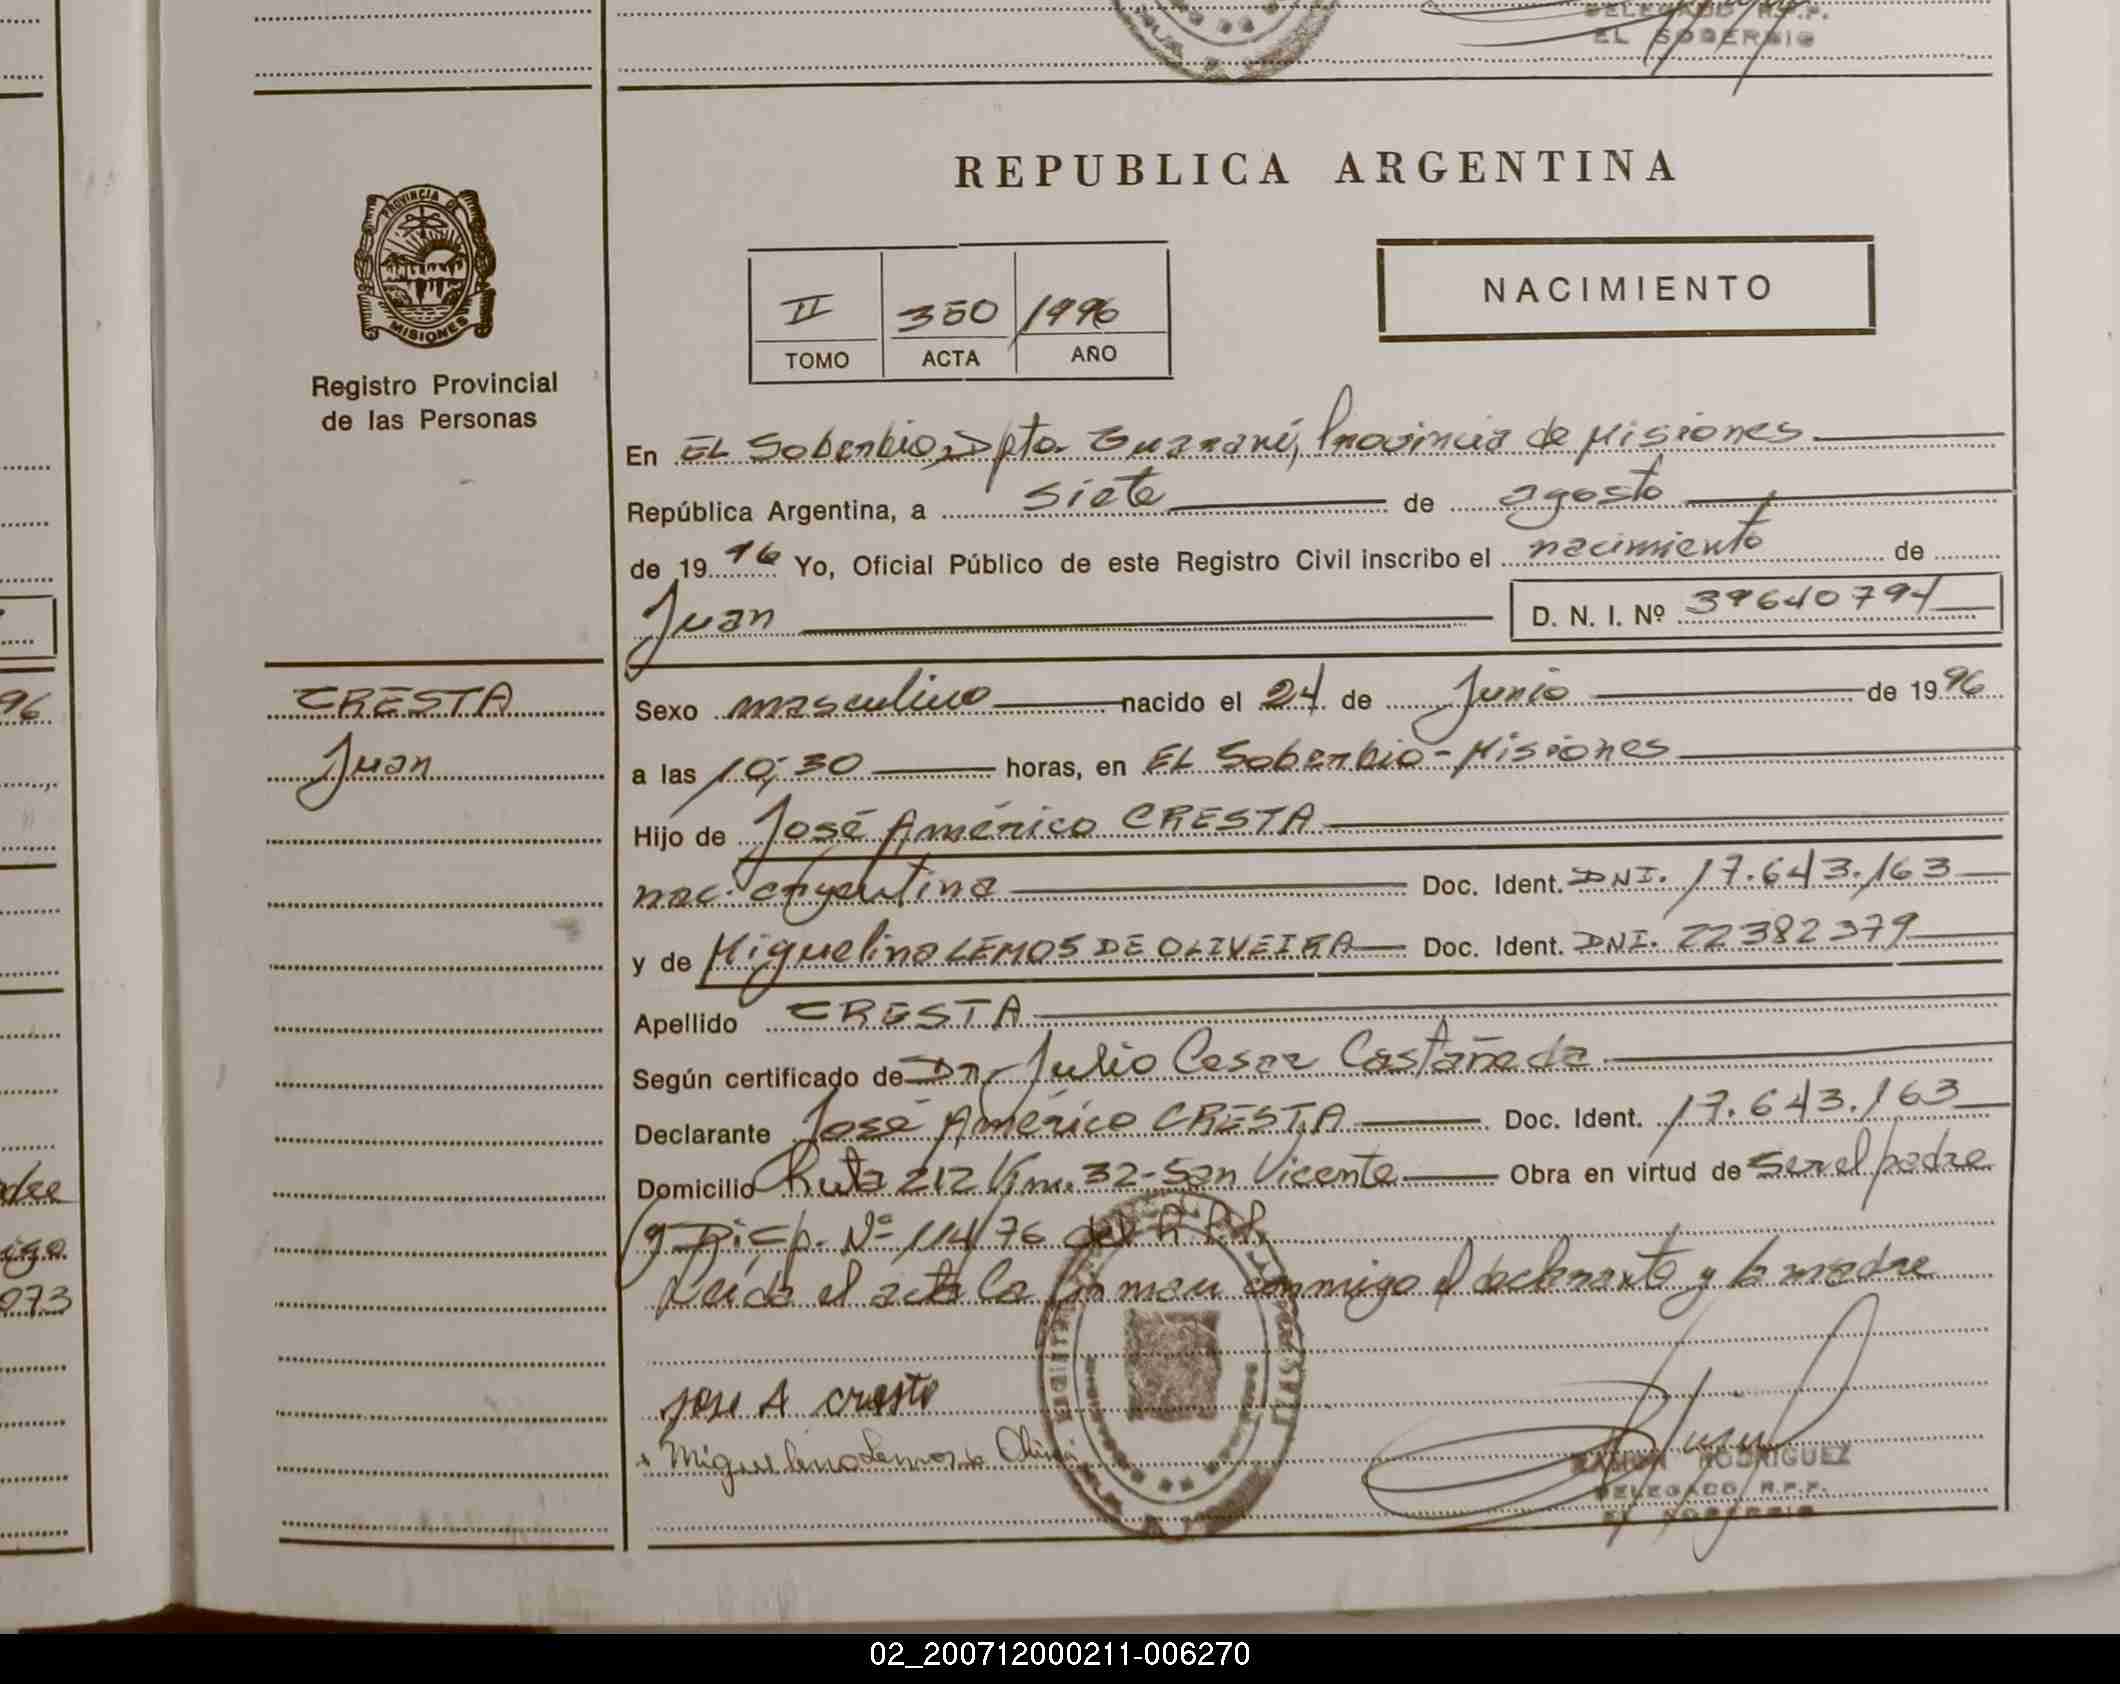 DELEGADO R.P.P.
EL SOBERBIO
REPUBLICA ARGENTINA
PROVINCIA DE
MISIONES
Registro Provincial
de las Personas
II 350 1996
TOMO ACTA AÑO
NACIMIENTO
En EL Soberbio, Dpto. Guaraní, Provincia de Misiones
República Argentina, a siete de agosto
de 19 96 Yo, Oficial Público de este Registro Civil inscribo el nacimiento de
Juan D. N. I. Nº 39640794
CRESTA
Juan
Sexo masculino nacido el 24 de Junio de 19 96
a las 10;30 horas, en EL Soberbio - Misiones
Hijo de José Américo CRESTA
nac. argentina Doc. Ident. DNI. 17.643.163
y de Miguelina LEMOS DE OLIVEIRA Doc. Ident. DNI. 22382379
Apellido CRESTA
Según certificado de Dr. Julio Cesar Castañeda
Declarante José Américo CRESTA Doc. Ident. 17.643.163
Domicilio Ruta 212 Km. 32-San Vicente Obra en virtud de ser el padre
y Disp. Nº 114/76 del R.P.P.
Leída el acta la firman conmigo el declarante y la madre
Jose A cresta
Miguelina Lemos de
RAMON RODRIGUEZ
DELEGADO R.P.P.
EL SOBERBIO
96
073
02_200712000211-006270